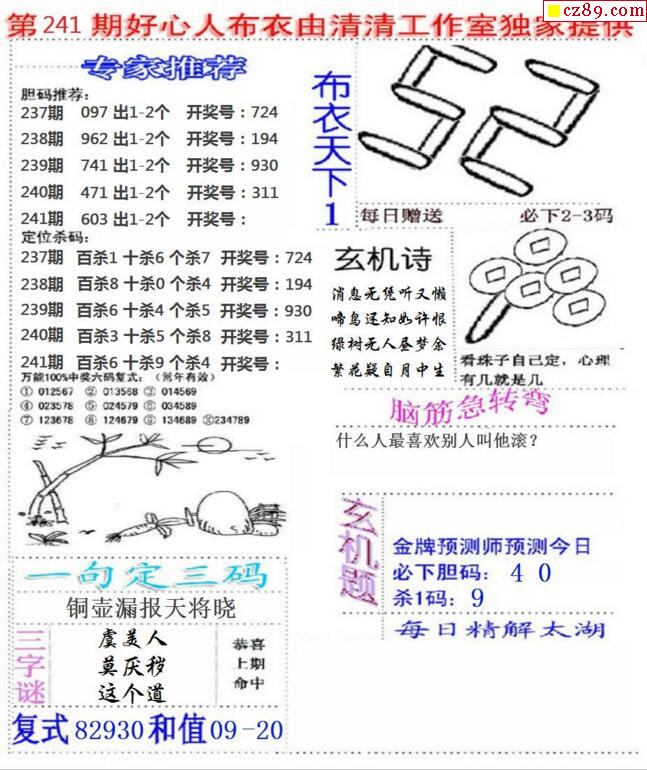 cz89.com
第241期好心人布衣由清清工作室独家提供
专家推荐
胆码推荐:
237期 097出1-2个 开奖号:724
238期 962出1-2个 开奖号:194
239期 741出1-2个 开奖号:930
240期 471出1-2个 开奖号:311
241期 603出1-2个 开奖号:
定位杀码:
237期 百杀1 十杀6 个杀7 开奖号:724
238期 百杀8 十杀0 个杀4 开奖号:194
239期 百杀6 十杀4 个杀5 开奖号:930
240期 百杀3 十杀5 个杀8 开奖号:311
241期 百杀6 十杀9 个杀4 开奖号:
万能100%中奖六码复式:(常年有效)
① 012567 ② 013568 ③ 014569
④ 023578 ⑤ 024579 ⑥ 034589
⑦ 123678 ⑧ 124679 ⑨ 134689 ⑩234789
一句定三码
铜壶漏报天将晓
三字谜
虞美人
莫厌秽
这个道
恭喜
上期
命中
复式82930和值09-20
布衣天下1
52
每日赠送 必下2-3码
玄机诗
消息无凭听又懒
啼鸟还知如许恨
绿树无人昼梦余
繁花疑自月中生
看珠子自己定,心理
有几就是几
脑筋急转弯
什么人最喜欢别人叫他滚?
玄机题
金牌预测师预测今日
必下胆码: 4 0
杀1码: 9
每日精解太湖